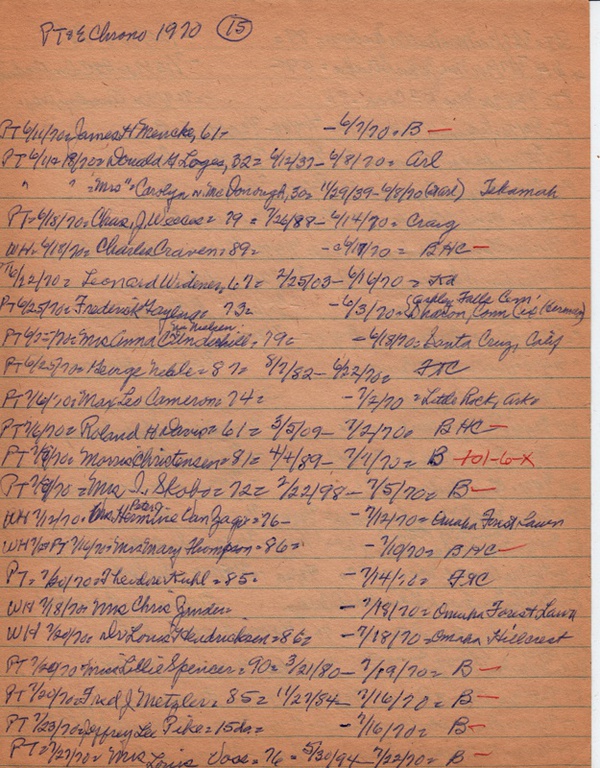 PT & E Chrono 1970 (15)
PT 6/11/70= James H Mencke, 61= - 6/7/70= B -
PT 6/11+18/70= Donald G Loges, 32= 4/12/37- 6/8/70= Arl
" " = "Mrs" = Carolyn n. McDonough, 30= 1/29/39- 6/8/70 (Arl) Tekamah
PT= 6/18/70= Chas. J. Weaver= 79 = 7/26/88- 6/14/70= Craig
WH= 6/18/70= Charles Craven= 89= - 6/17/70= BHC -
6/22/70= Leonard Widener, 67= 2/25/03- 6/16/70=
PT 6/25/70= Frederick 73= - 6/3/70= Falls Cem
Sharon, Conn
PT 6/ /70= Mrs Anna Underhill= 79= - 6/18/70= Santa Cruz, Calif
n. Nielsen
PT 6/25/70= George Neble= 87= 8/7/82- 6/22/70= FTC
PT 7/6/70= Max Leo Cameron= 74= - 7/2/70 = Little Rock, Ark
PT 7/6/70= Roland H Davis= 61= 3/5/09- 7/2/70= BHC -
PT 7/9/70= Morris Christensen= 81= 4/4/89- 7/7/70= B +01-6-X
PT 7/9/70= Mrs J. Skobo= 72= 2/22/98- 7/5/70= B -
WH 7/12/70= Mrs Hermine Van Zago= 76- - 7/12/70= Omaha Forest Lawn
WH PT 7/16/70= Mrs Mary Thompson= 86= - 7/10/70= BHC -
PT= 7/20/70= Theodore Kuhl= 85= - 7/14/70= FTC
WH 7/18/70= Mrs Chris - 7/18/70= Omaha Forest Lawn
WH 7/20/70= Dr Louis Hendricksen= 86= - 7/18/70= Omaha Hillcrest
PT 7/20/70= Miss Lillie Spencer= 90= 3/21/80- 7/19/70= B -
PT 7/20/70= Fred J. Metzler= 85= 11/27/84- 7/16/70= B -
PT 7/23/70= Jeffrey Lee Pike= 15da= - 7/16/70= B -
PT= 7/27/70= Mrs Louis Vose= 76 = 5/30/94- 7/22/70= B -